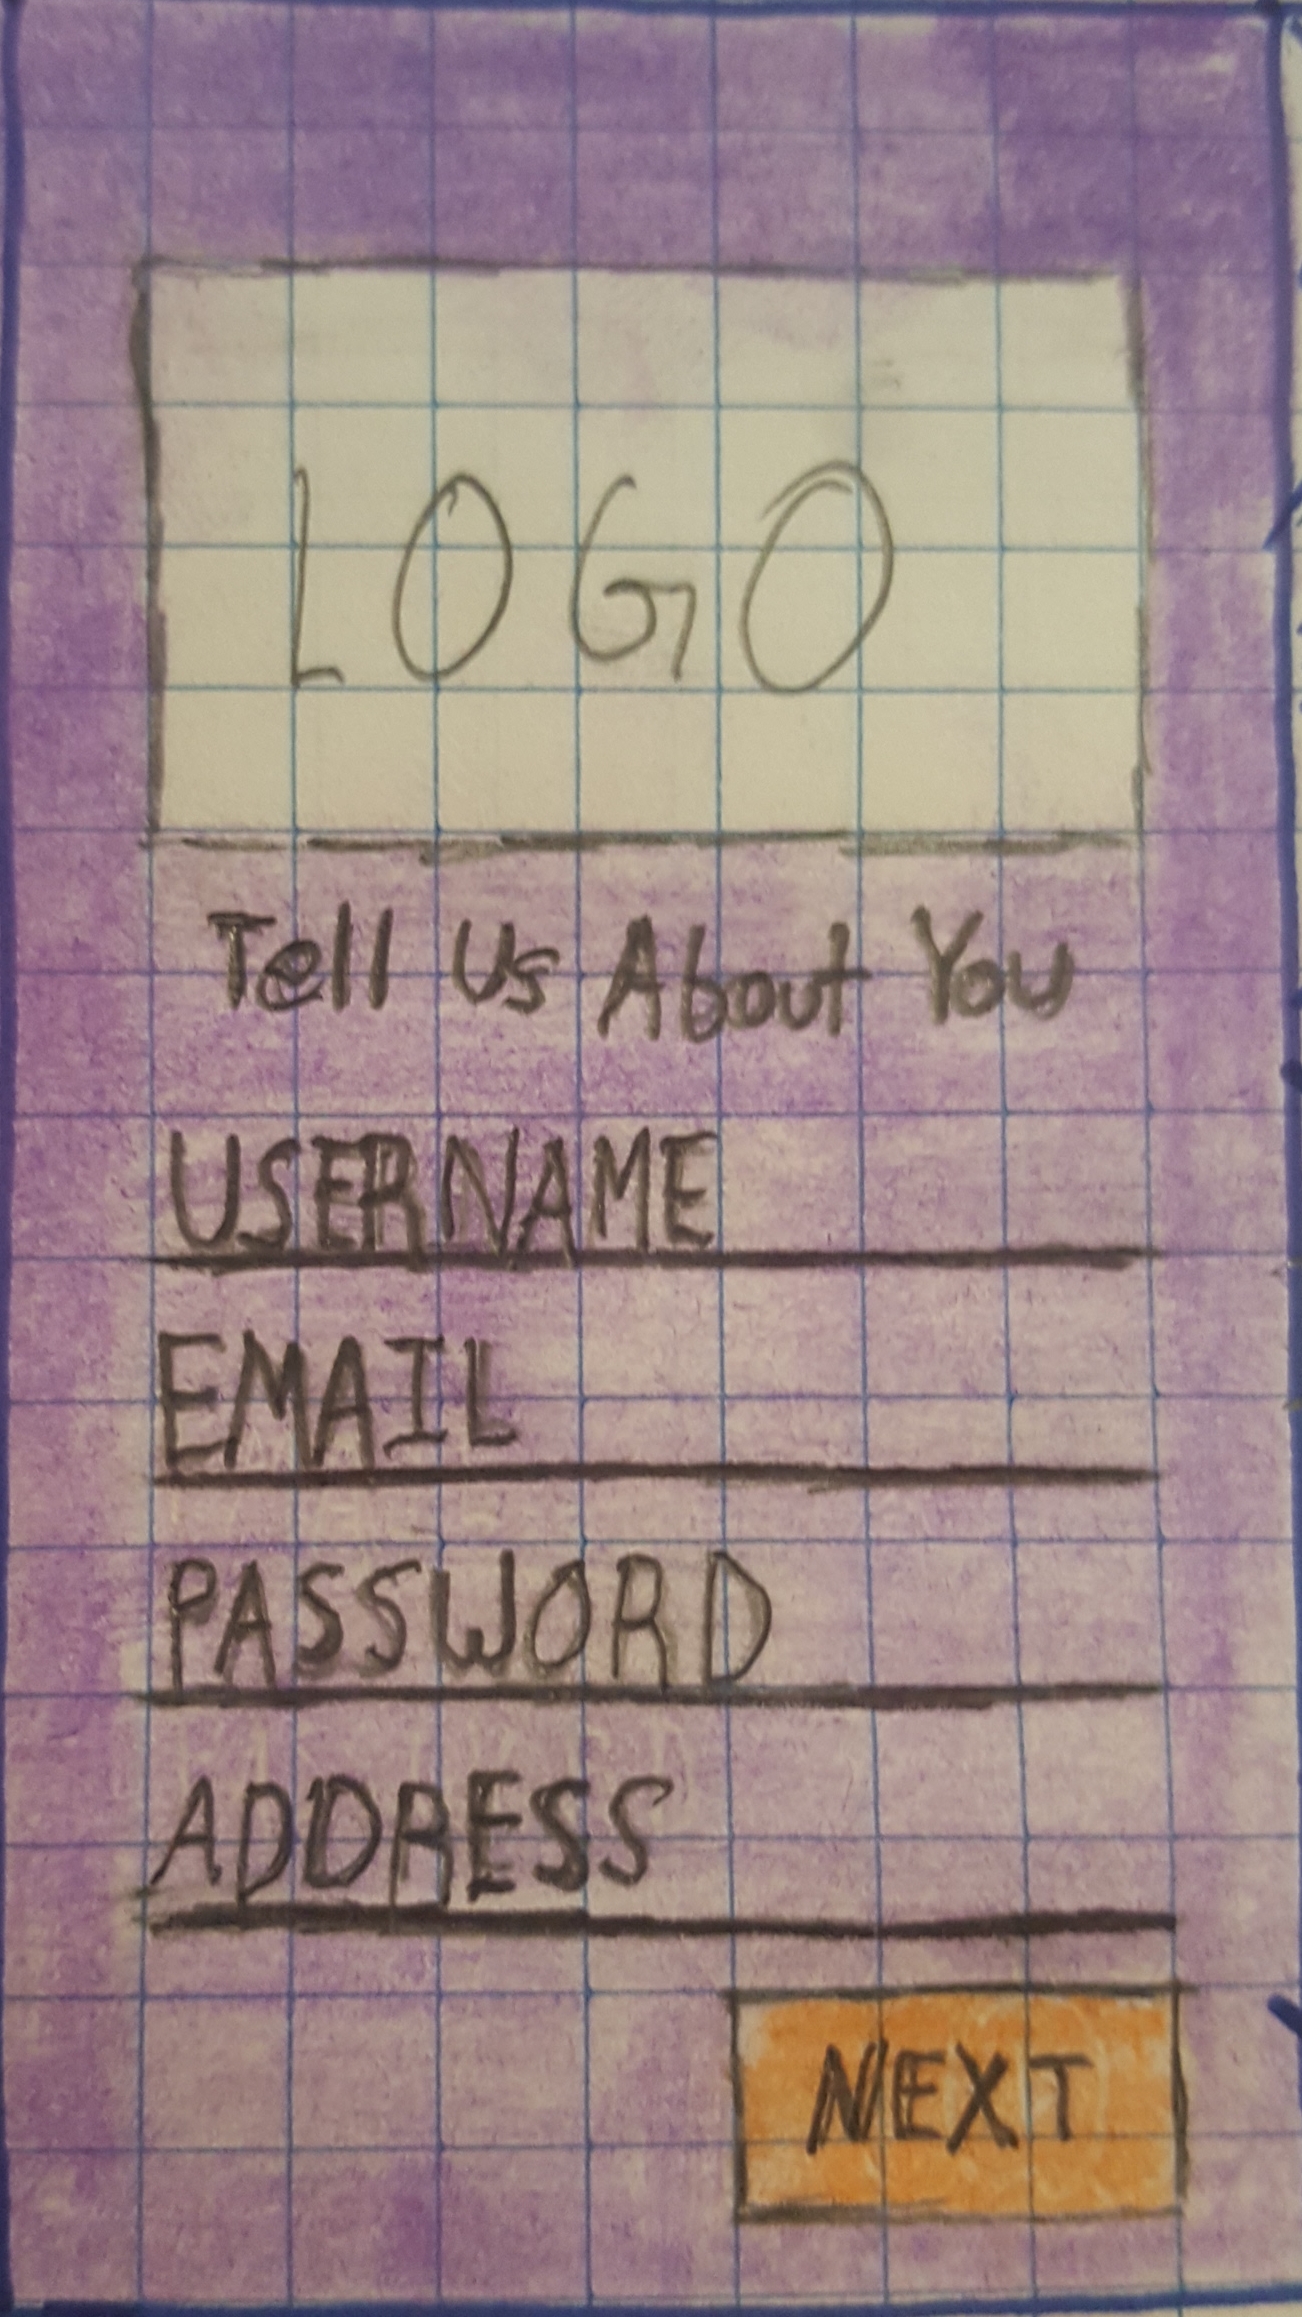 LOGO
Tell Us About You
USERNAME
EMAIL
PASSWORD
ADDRESS
NEXT